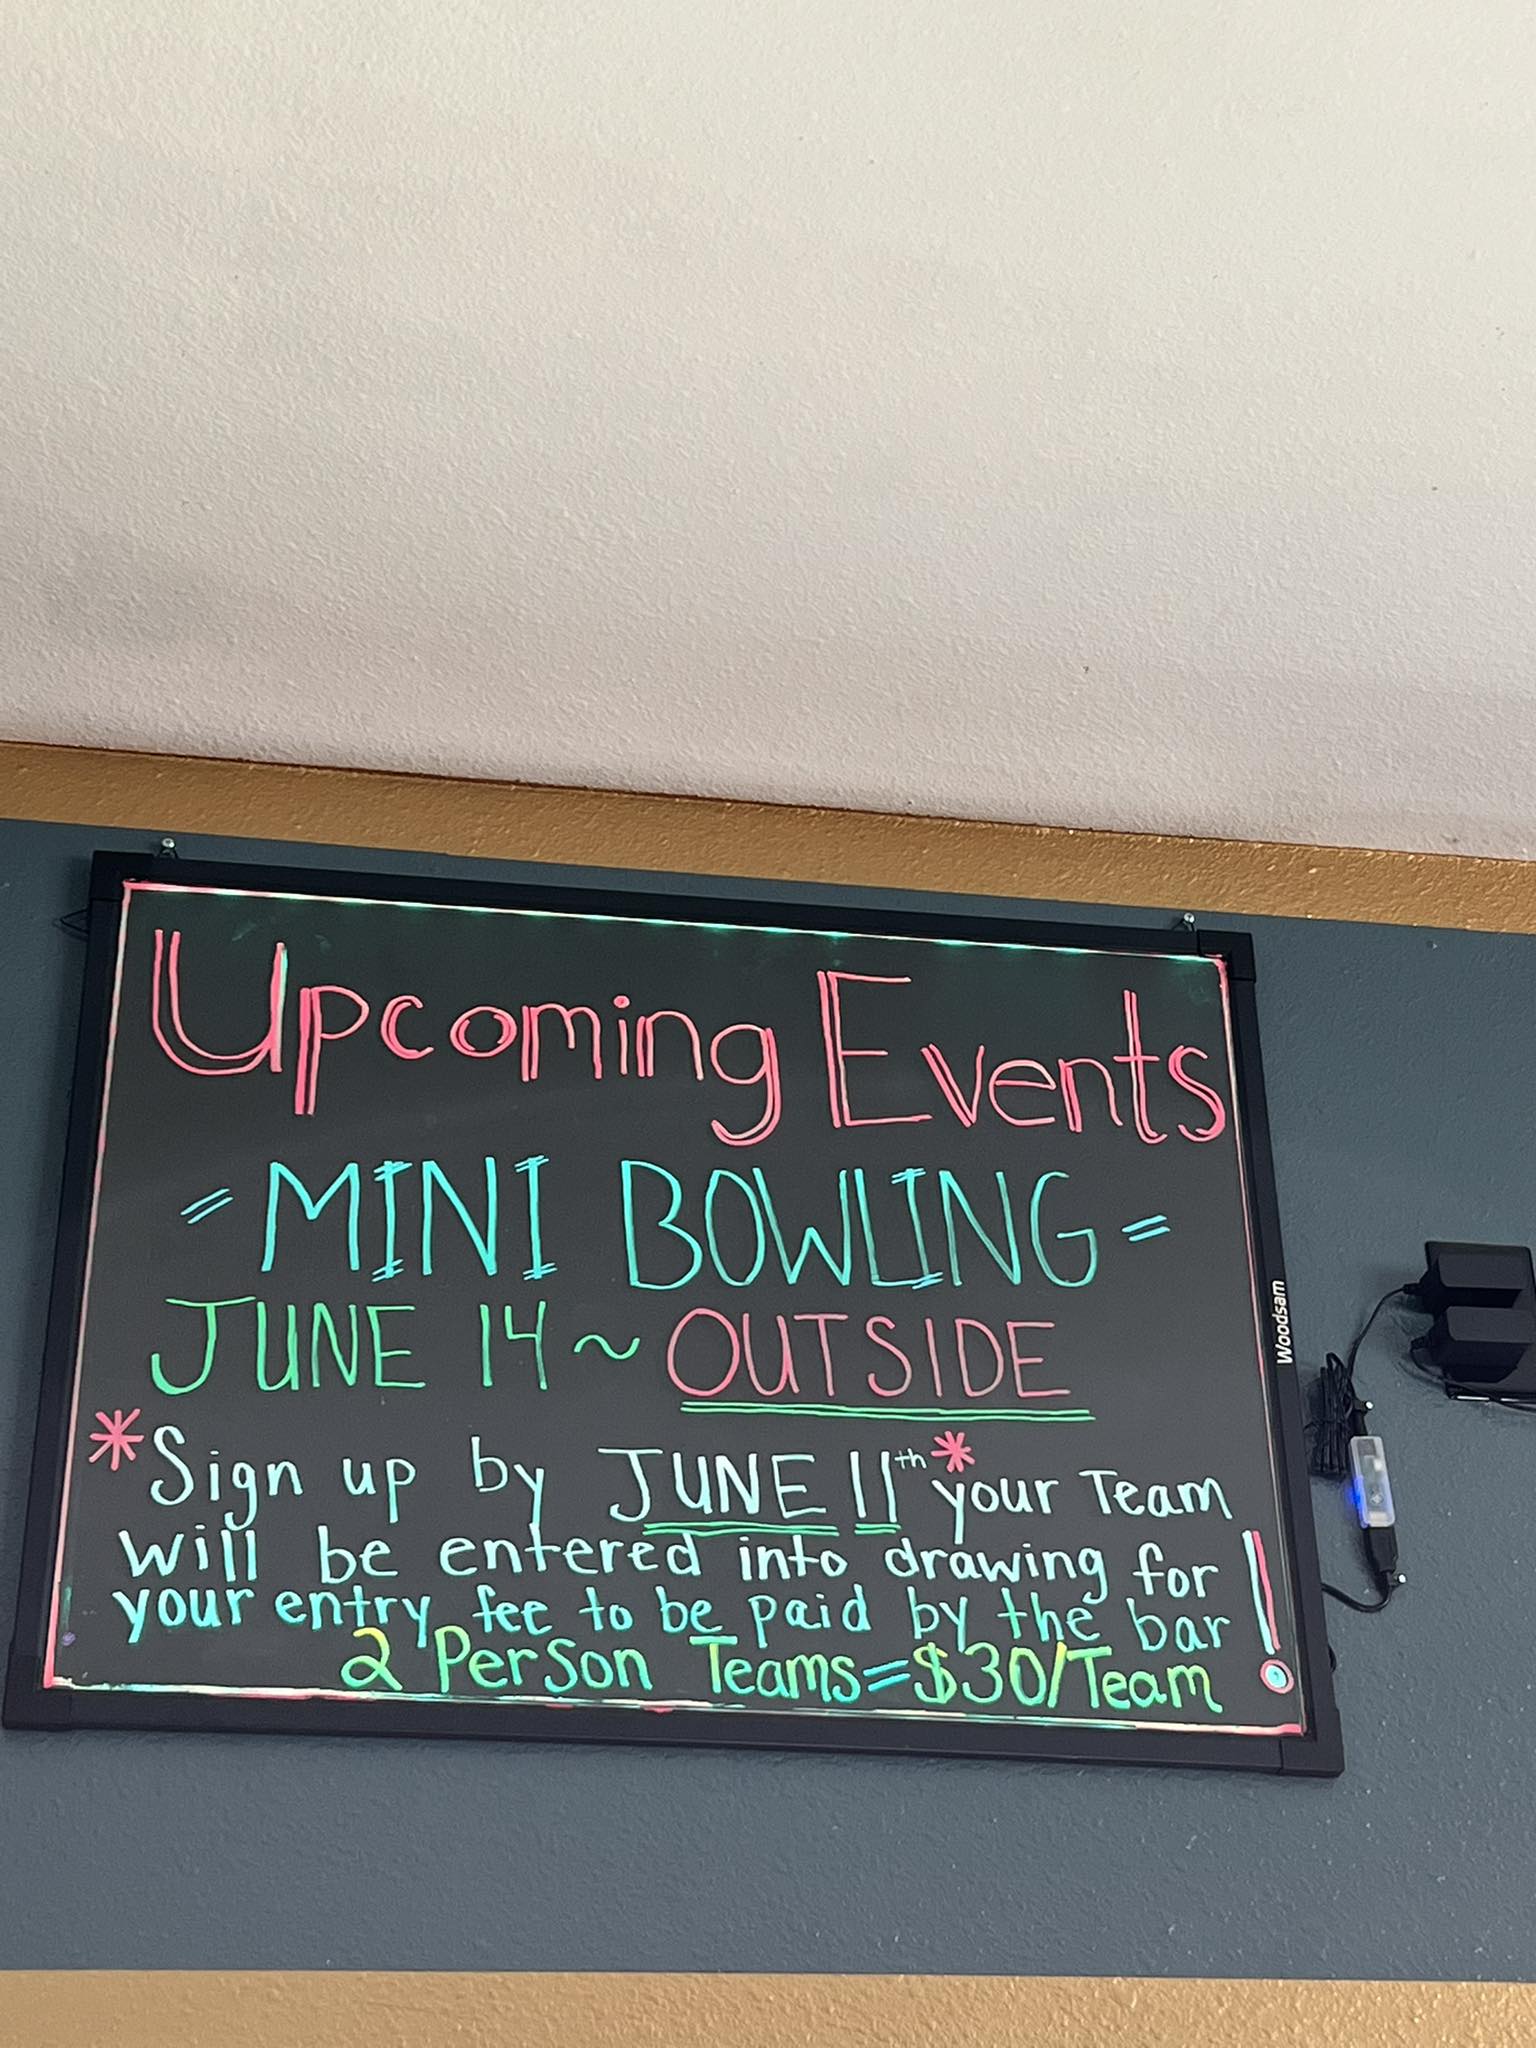 Upcoming Events
= MINI BOWLING =
JUNE 14 ~ OUTSIDE
*Sign up by JUNE 11th* your Team
will be entered into drawing for
your entry fee to be paid by the bar!
2 Person Teams = $30/Team
Woodsam